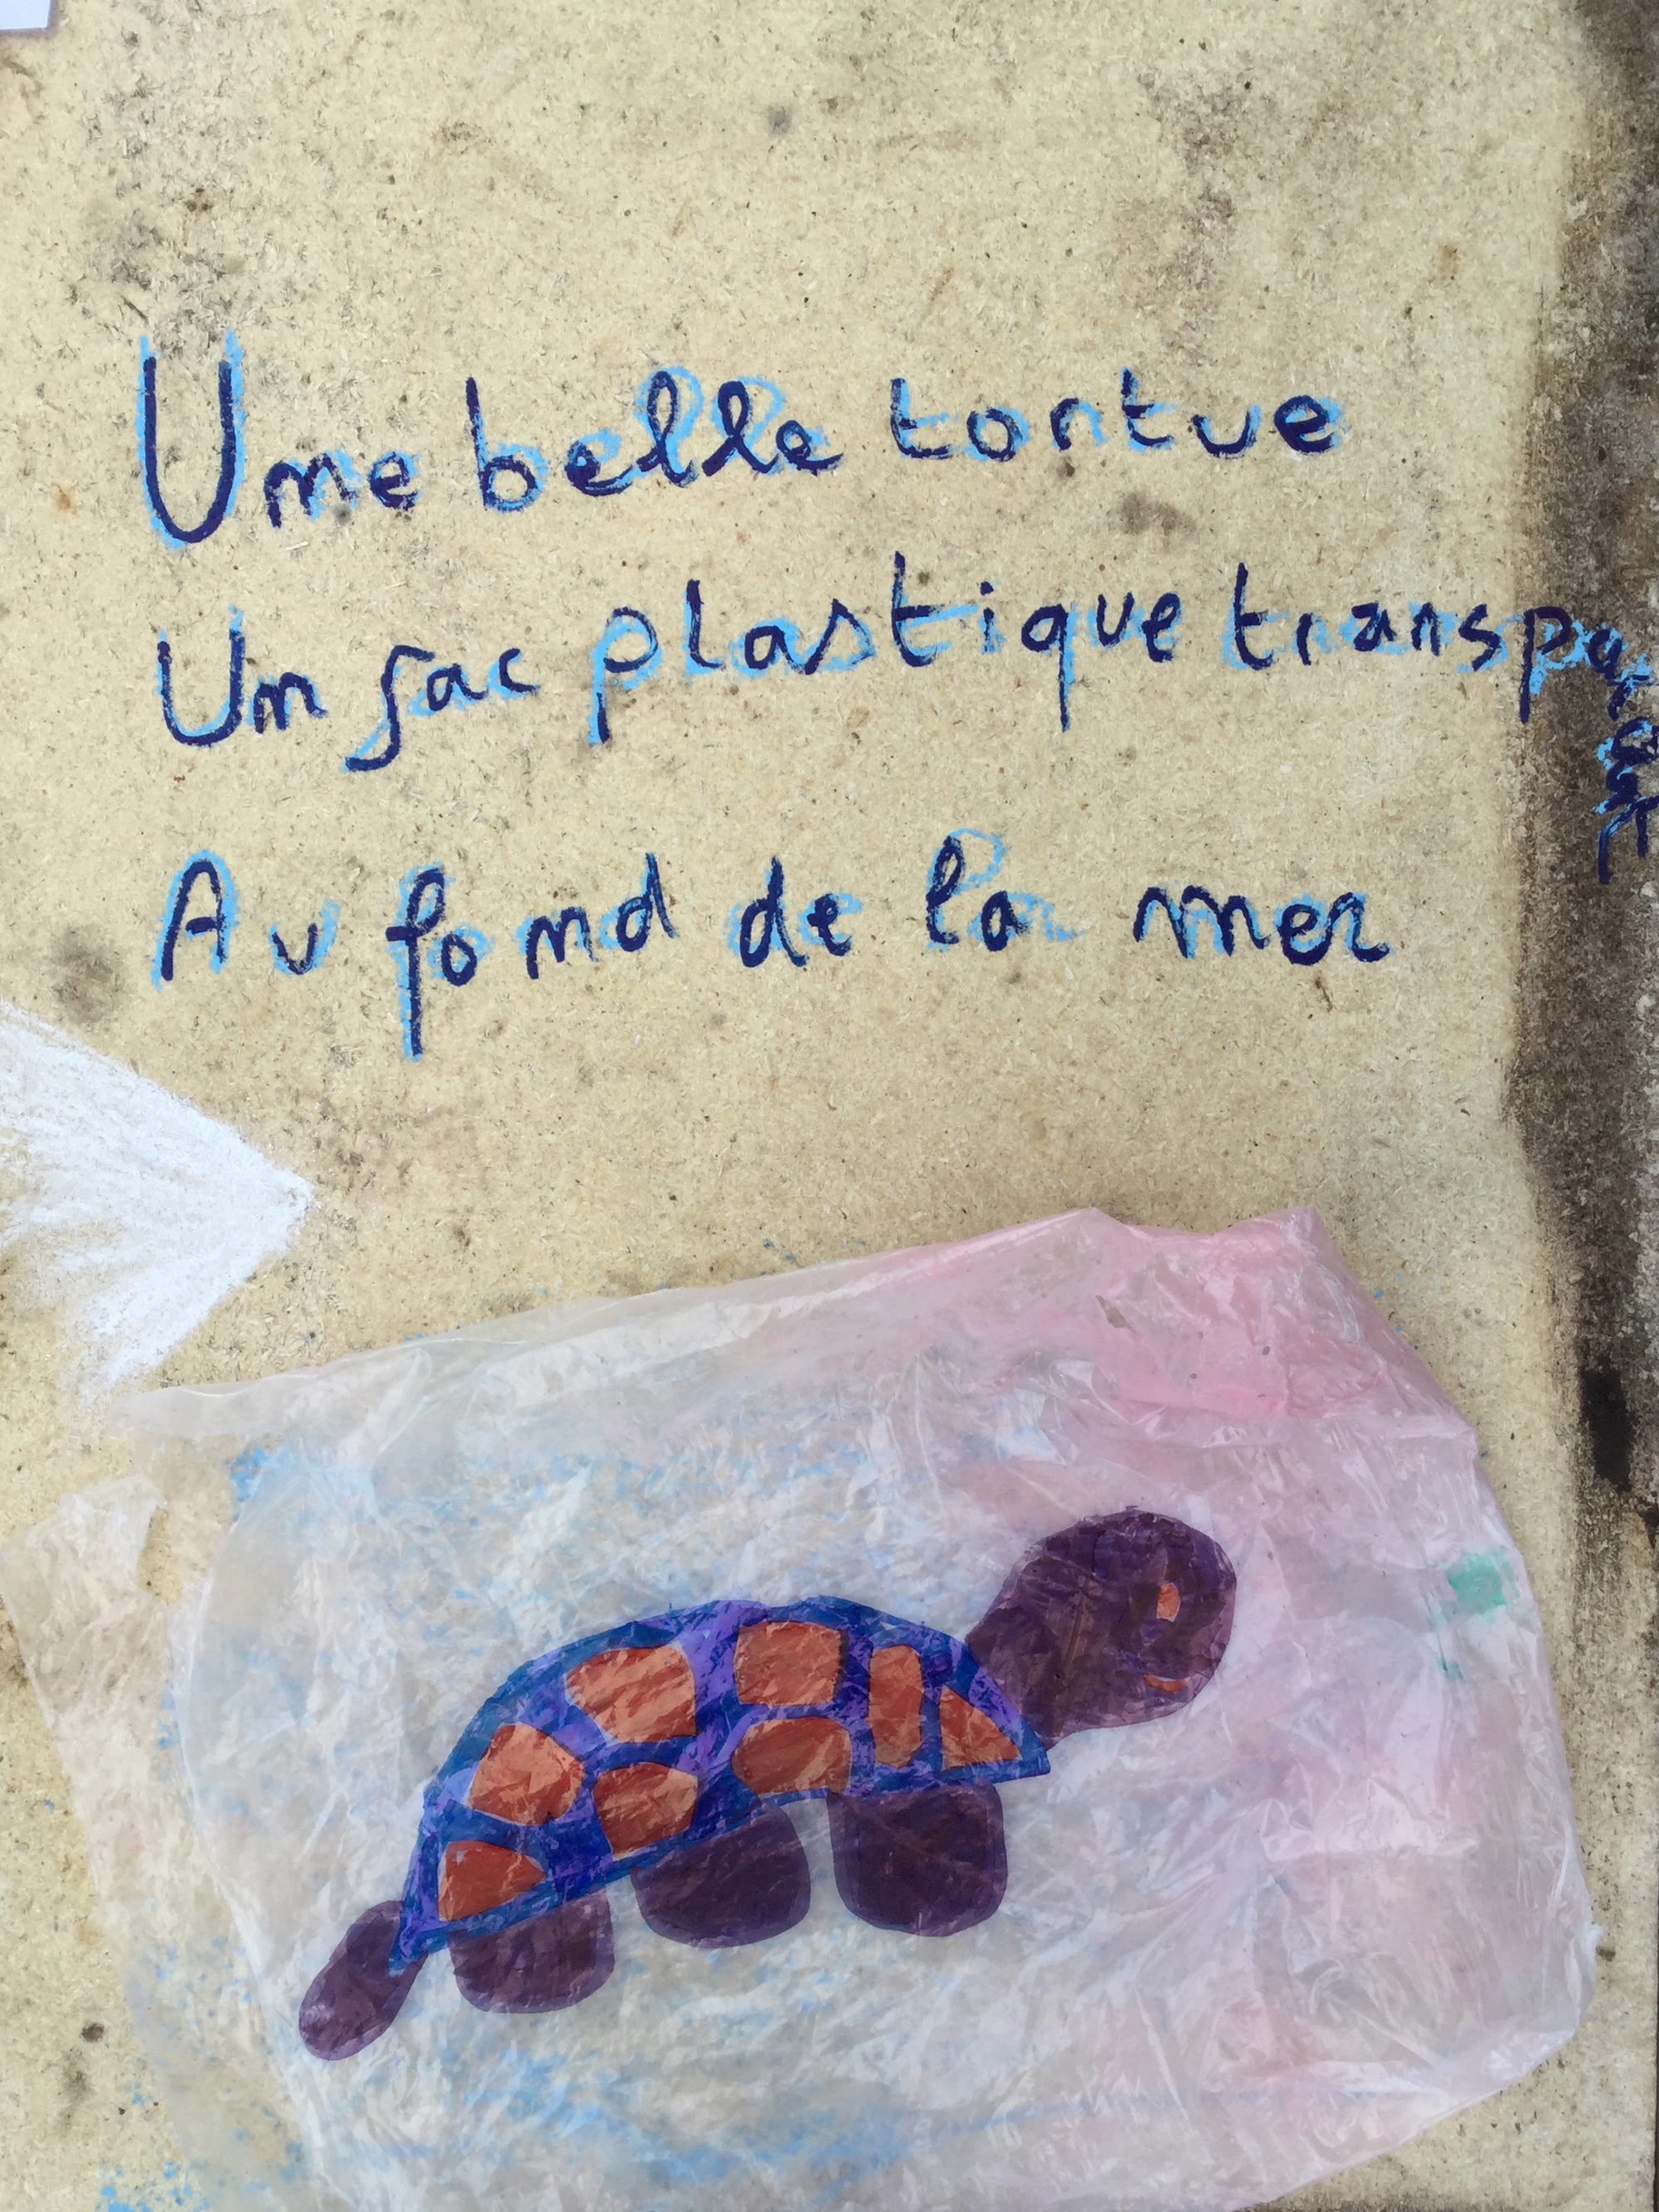 Une belle tortue
Un sac plastique transparent
Au fond de la mer